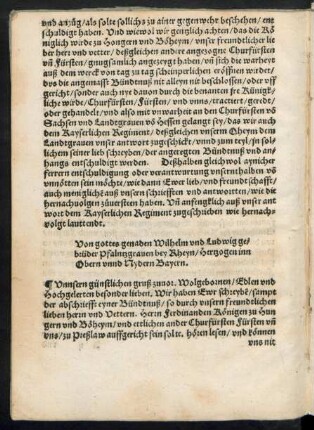 vnd anzug/als solt sollichs zu ainer gegenwehr beschehen/ ent
schuldiget haben. Vnd wiewol wir gentzlich achten/das die Kö
niglich wirde zu Hungern vnd Böheym/vnser freundtlicher lie
ber herr vnd vetter/ deßgleichen ander angezogne Churfürsten
vñ Fürsten/gnugsamlich angezeygt haben/vñ sich die warheyt
auß dem werck von tag zu tag scheinperlichen eröffnen werdet/
das die angemaßt Bündtnuß nit allein nit beschlossen/noch vff
gericht/ sonder auch nye dauon durch die benanten fre Künigk/
liche wirde/Churfürsten/Fürsten/vnd vnns/tractiert/geredt/
oder gehandelt/ vnd also mit vnwarheit an den Churfürsten vō
Sachsen vnd Landtgrauen vō Hessen gelangt sey/das wir auch
dem Kayserlichen Regiment/deßgleichen vnserm Oheym dem
Landtgrauen vnser antwort zugeschickt/vnnd zum teyl/zu sol/
lichem seiner lieb schreyben/der angeregten Bündtnuß vnd an/
hangs entschuldigt werden. Deßhalben gleichwol aynicher
ferrern entschuldigung oder verantwurtung vnsernthalben vō
vnnötten sein möchte/wie dann Ewer lieb/vnd freundtschafft/
auch menigklich auß vnsern schriefften vnd antworten/wie die
hernachuolgen zůuersteen haben. Vñ anfengklich auß vnser ant
wort dem Kayserlichen Regiment zugeschrieben wie hernachs
volgt lauttendt.
Von gottes genaden Wilhelm vnd Ludwig ge/
brüder Pfaltzgrauen bey Rheyn/ Hertzogen inn
Obern vnnd Nydern Bayern.
¶ Vnnsern günstlichen gruß zuuor. Wolgebornen/Edlen vnd
Hochgelerten besonder lieben. Wir haben Ewr schreybē/sampt
der abschriefft eyner Bündtnuß/ so durch vnsern freundtlichen
lieben herrn vnd Vettern. Herrn Ferdinanden Königen zu Hun
gern vnd Böheyn/ vnd ettlichen ander Churfürsten Fürsten vñ
vns/zu Preßlaw auffgericht sein solt. hören lesen/ vnd können
vns nit